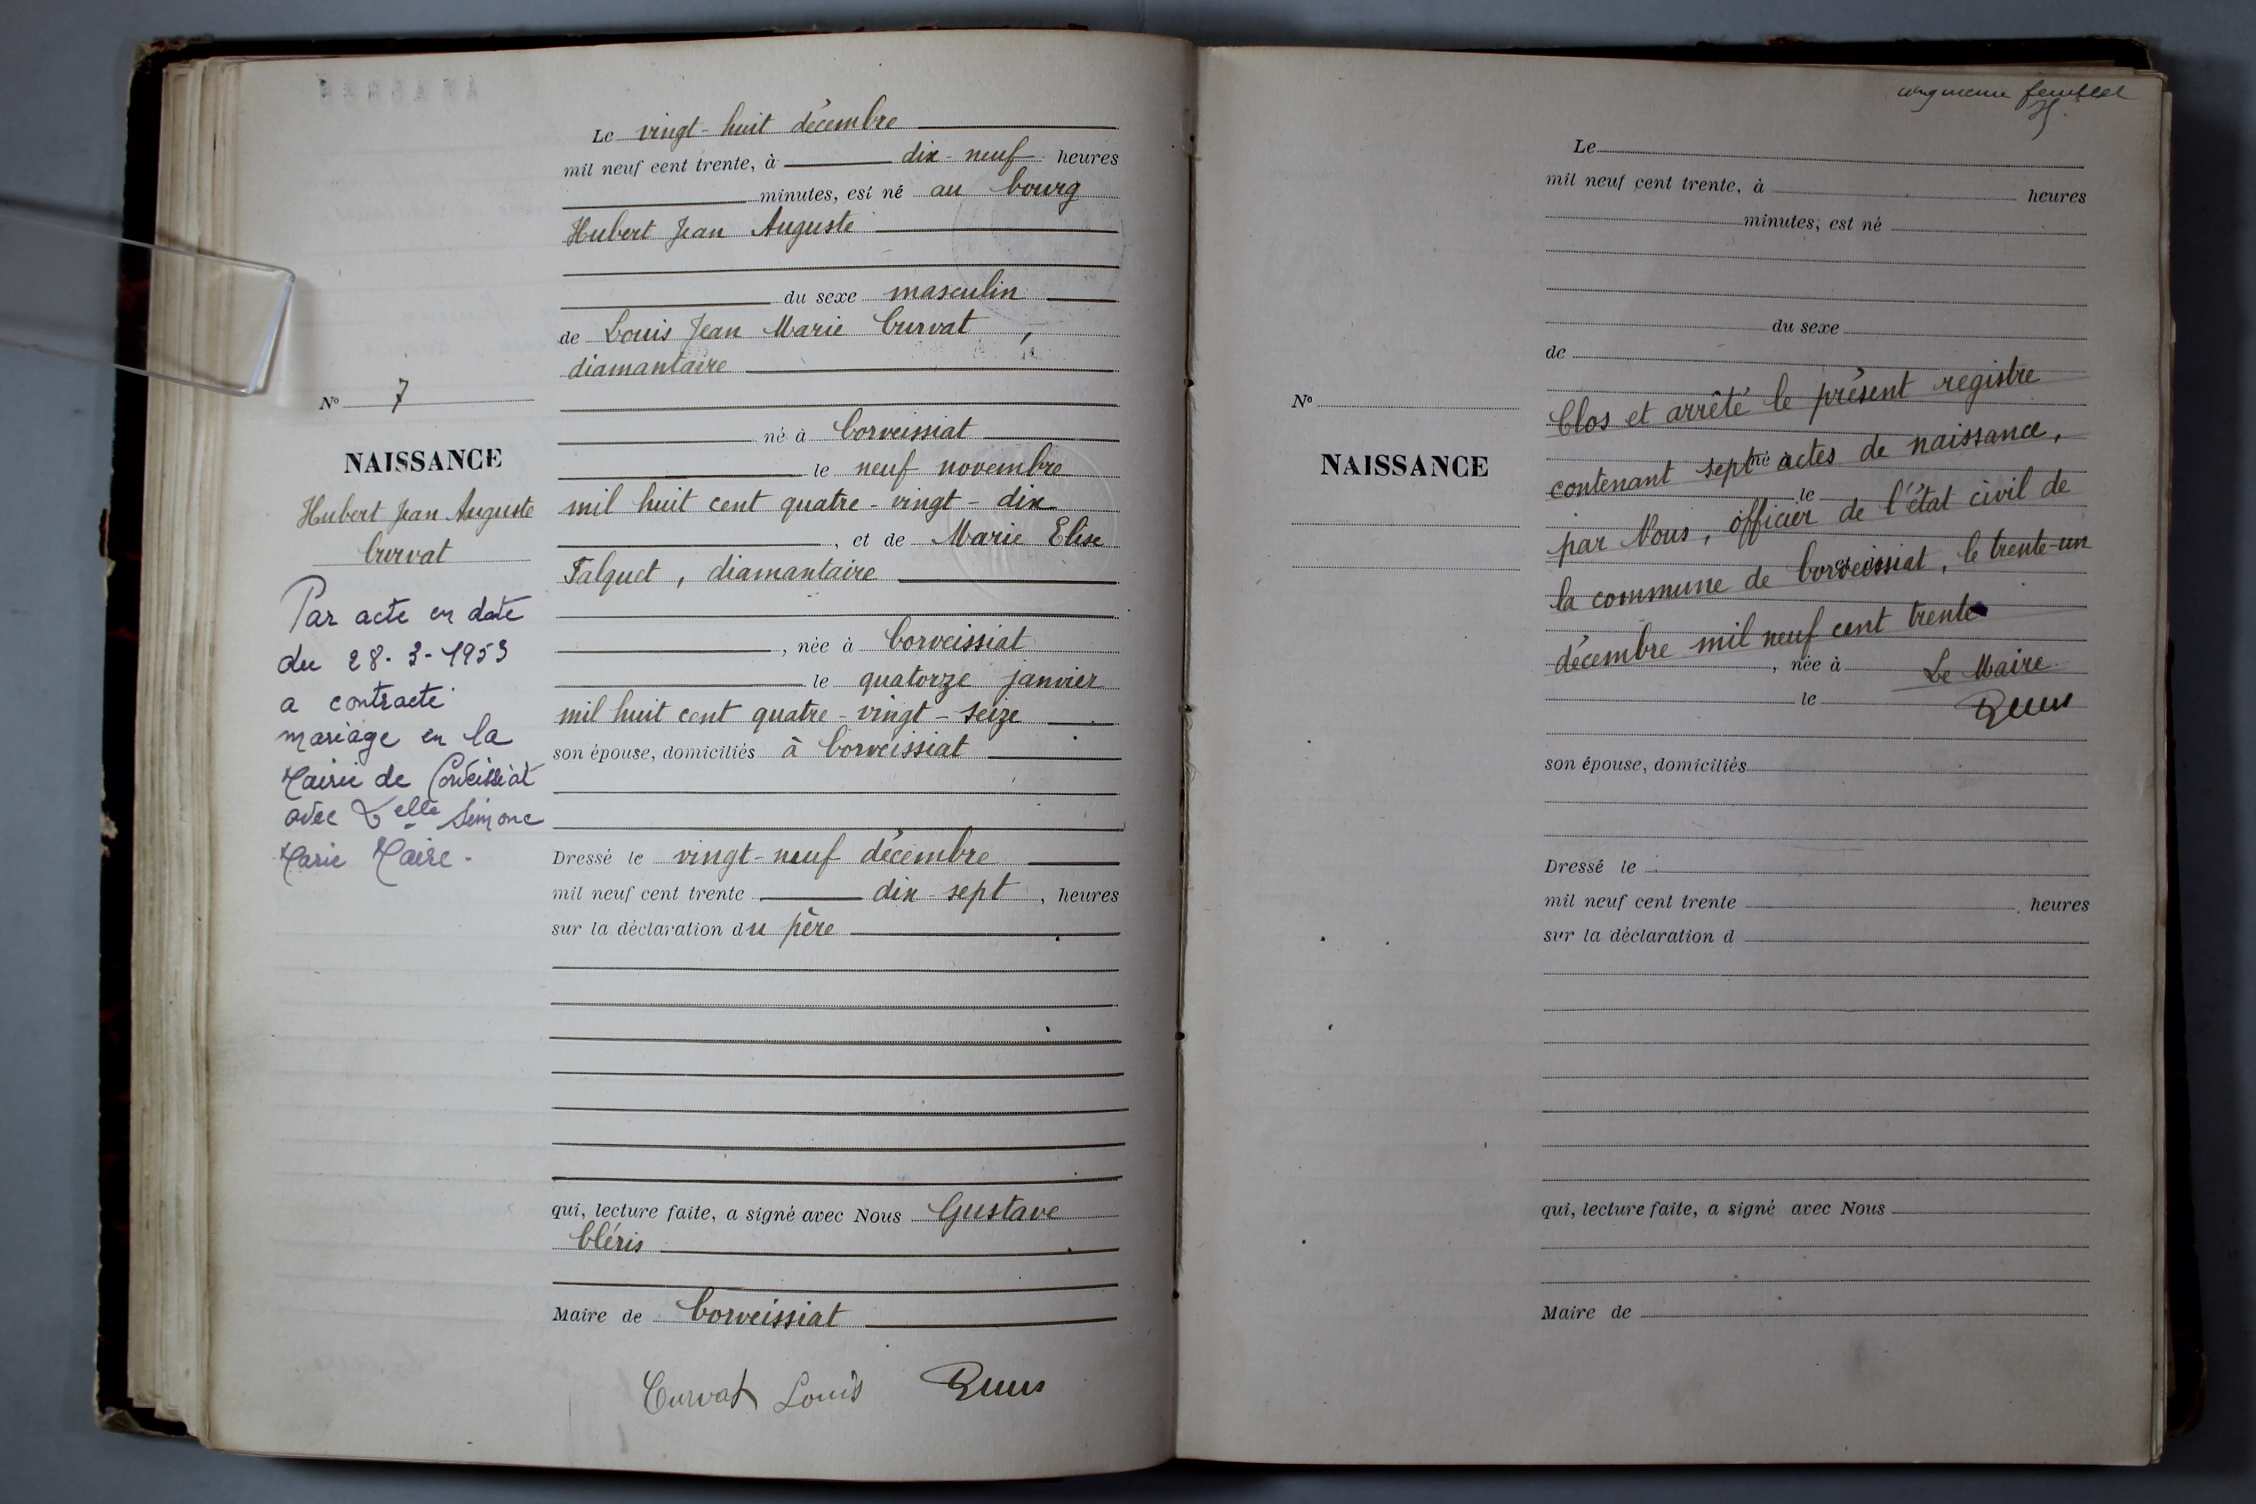 Le vingt-huit décembre
mil neuf cent trente, à dix-neuf heures
minutes, est né au bourg
Hubert Jean Auguste
du sexe masculin
de Louis Jean Marie Curvat,
diamantaire
né à Corveissiat
le neuf novembre
mil huit cent quatre-vingt-dix
, et de Marie Elise
Falquet, diamantaire
, née à Corveissiat
le quatorze janvier
mil huit cent quatre-vingt-seize
son épouse, domiciliés à Corveissiat
Dressé le vingt-neuf décembre
mil neuf cent trente dix-sept, heures
sur la déclaration du père
qui, lecture faite, a signé avec Nous Gustave
Cléris
Maire de Corveissiat
Curvat Louis
N° 7
NAISSANCE
Hubert Jean Auguste
Curvat
Par acte en date
du 28-3-1953
a contracté
mariage en la
Mairie de Corveissiat
avec Delle Simone
Marie Maire.
feuillet
Le
mil neuf cent trente, à heures
minutes, est né
du sexe
de
N°
NAISSANCE
Clos et arrêté le présent registre
contenant sept actes de naissance,
né à
le
par Nous, officier de l'état civil de
la commune de Corveissiat, le trente-un
décembre mil neuf cent trente
, née à
Le Maire
le
son épouse, domiciliés
Dressé le
mil neuf cent trente , heures
sur la déclaration d
qui, lecture faite, a signé avec Nous
Maire de